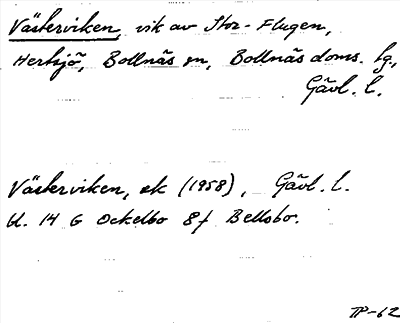 Västerviken, vik av Stor-Flugen,
Hertsjö, Bollnäs sn, Bollnäs doms. tg.,
Gävl. l.
Västerviken, ek (1958), Gävl. l.
bl. 14 G Ockelbo 8f Bellsbo.
TP-62